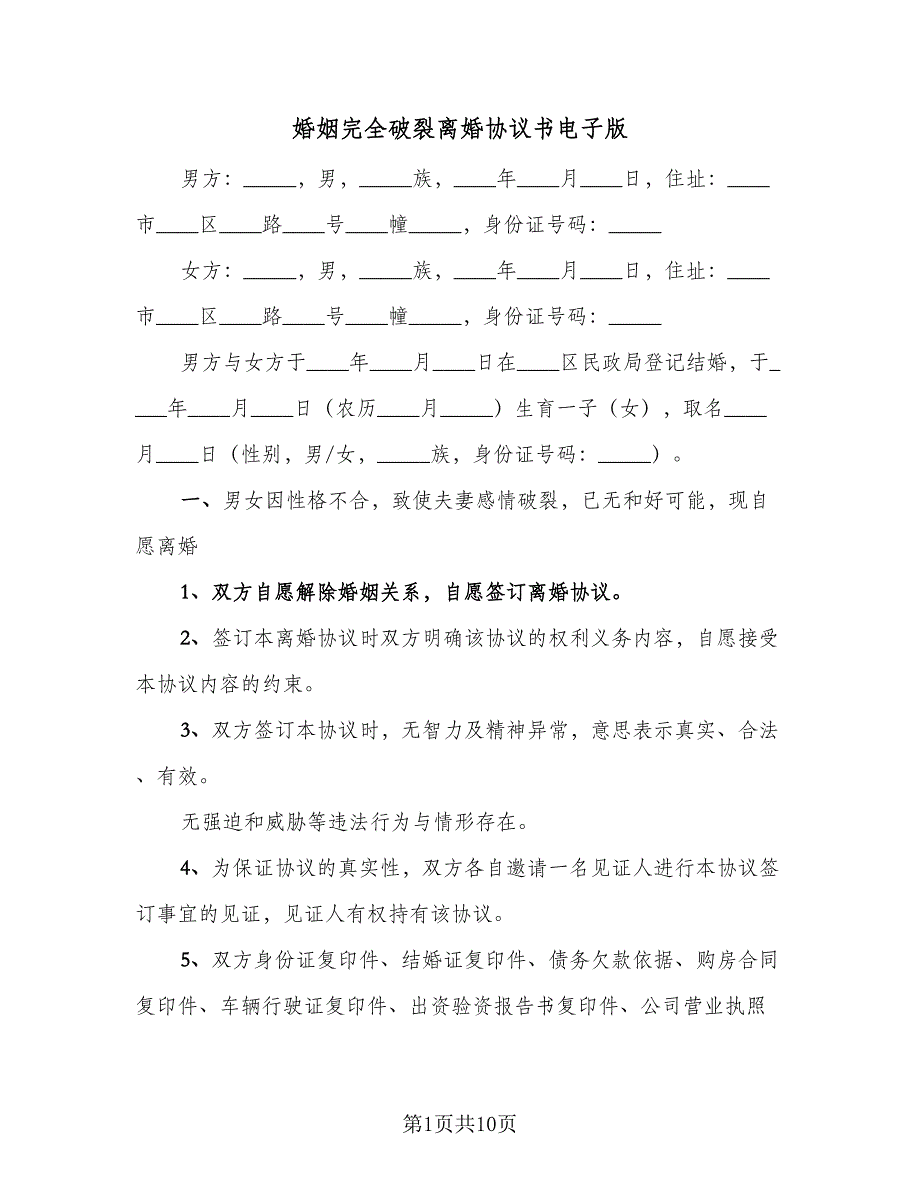 婚姻完全破裂离婚协议书电子版
男方：_____，男，_____族，____年____月____日，住址：____
市____区____路____号____幢_____，身份证号码：_____
女方：_____，男，_____族，____年____月____日，住址：____
市____区____路____号____幢_____，身份证号码：_____
男方与女方于____年____月____日在____区民政局登记结婚，于_
___年____月____日（农历____月_____）生育一子（女），取名____
月____日（性别，男/女，_____族，身份证号码：_____）。
一、男女因性格不合，致使夫妻感情破裂，已无和好可能，现自
愿离婚
1、双方自愿解除婚姻关系，自愿签订离婚协议。
2、签订本离婚协议时双方明确该协议的权利义务内容，自愿接受
本协议内容的约束。
3、双方签订本协议时，无智力及精神异常，意思表示真实、合法
、有效。
无强迫和威胁等违法行为与情形存在。
4、为保证协议的真实性，双方各自邀请一名见证人进行本协议签
订事宜的见证，见证人有权持有该协议。
5、双方身份证复印件、结婚证复印件、债务欠款依据、购房合同
复印件、车辆行驶证复印件、出资验资报告书复印件、公司营业执照
第1页共10页